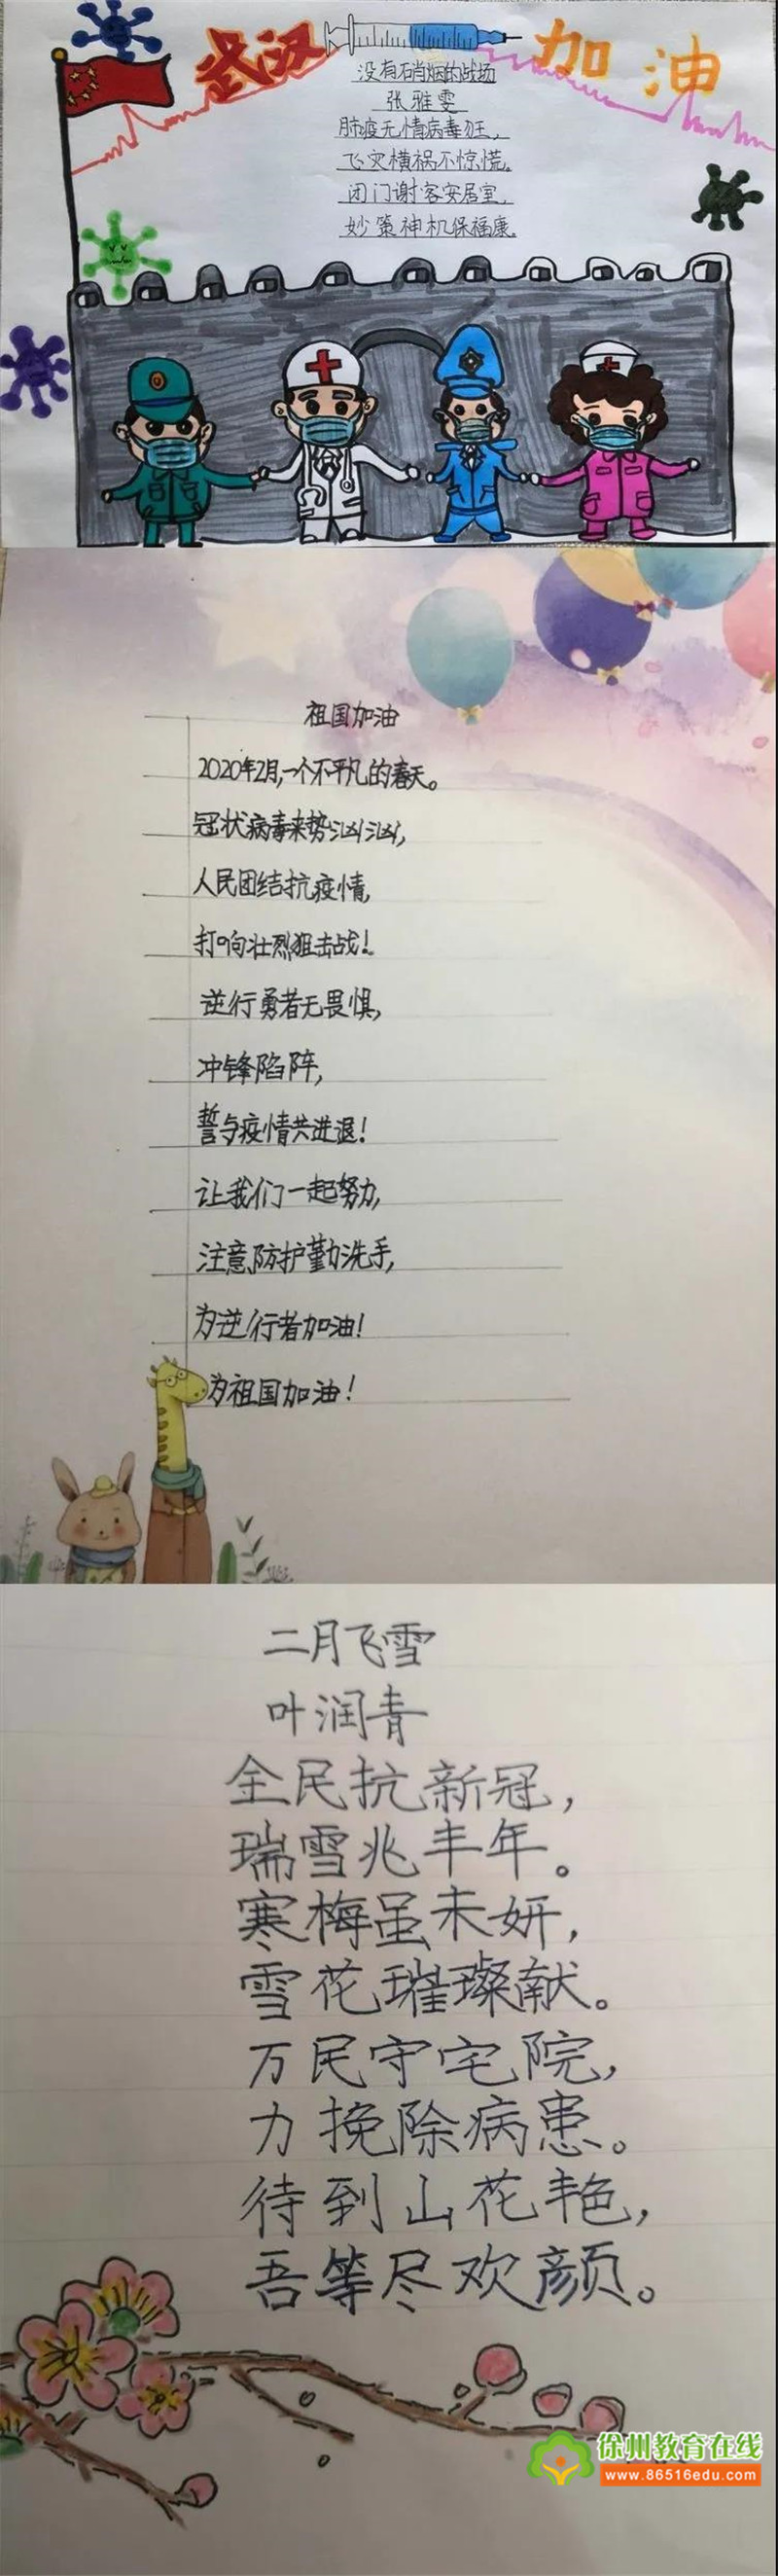 武汉 加油
没有硝烟的战场
张雅雯
肺疫无情病毒狂，
飞灾横祸不惊慌。
闭门谢客安居室，
妙策神机保福康。
祖国加油
2020年2月,一个不平凡的春天。
冠状病毒来势汹汹,
人民团结抗疫情,
打响壮烈狙击战!
逆行勇者无畏惧,
冲锋陷阵,
誓与疫情共进退!
让我们一起努力,
注意防护勤洗手,
为逆行者加油!
为祖国加油!
二月飞雪
叶润青
全民抗新冠，
瑞雪兆丰年。
寒梅虽未妍，
雪花璀璨献。
万民守宅院，
力挽除病患。
待到山花艳，
吾等尽欢颜。
徐州教育在线
www.86516edu.com